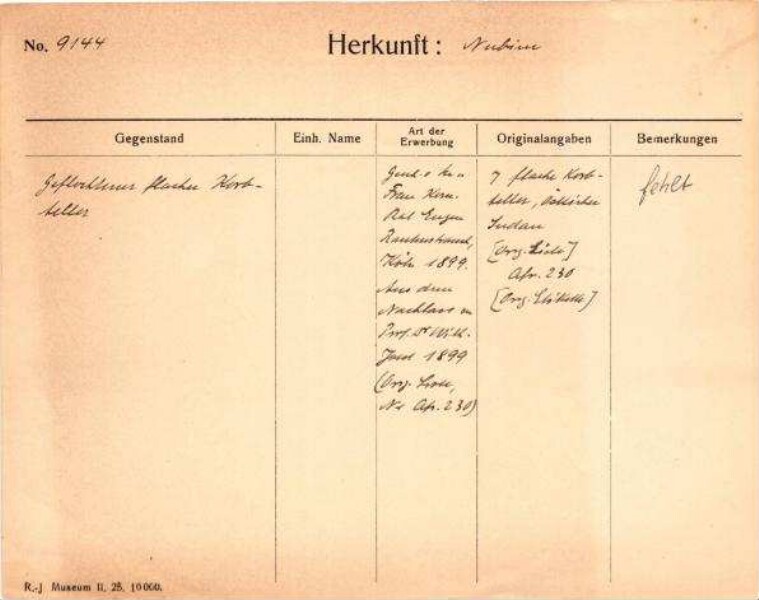 No. 9144
Herkunft: Nubien
Gegenstand
Einh. Name
Art der
Erwerbung
Originalangaben
Bemerkungen
Geflochtener flacher Korb-
teller
Frau Kom.
Rat Eugen
Rautenstrauch,
Köln 1899.
Aus dem
Nachlass v.
Prof. Dr Wilh.
Joest 1899
(Org. Liste,
Nr Afr. 230)
7 flache Korb-
teller, östlicher
Sudan
[Org. Liste]
Afr. 230
[Org. Etikette]
fehlt
R.-J Museum II. 25. 10000.